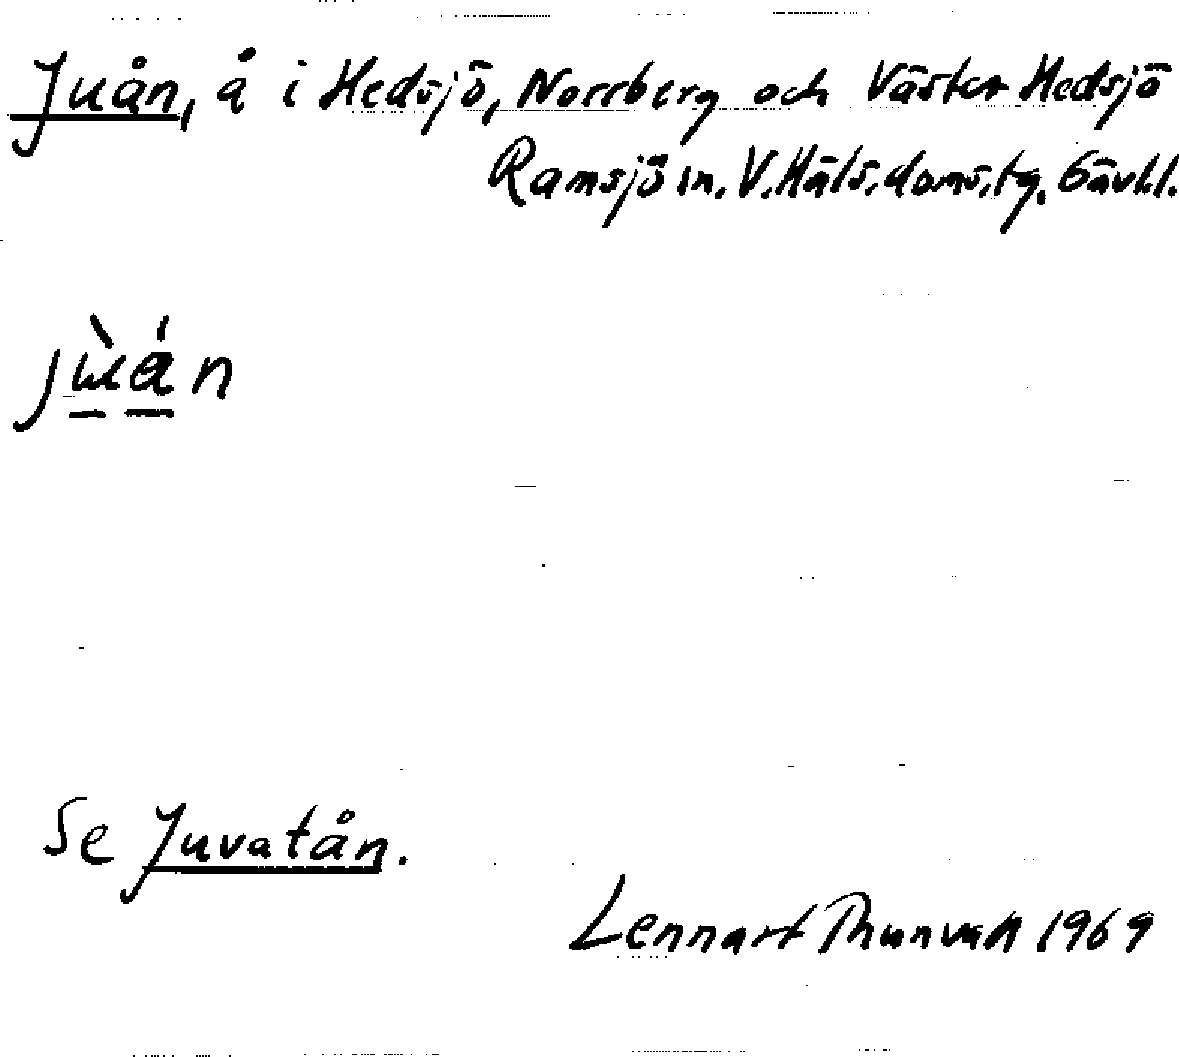 Juån, å i Hedsjö, Norrberg och Väster Hedsjö
Ramsjö sn. V. Häls. doms. tg. Gävl.l.
jùán
Se Juvatån.
Lennart Thunvall 1969